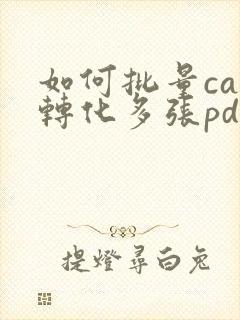 如何批量ca
轉化多張pd
提燈尋白兔